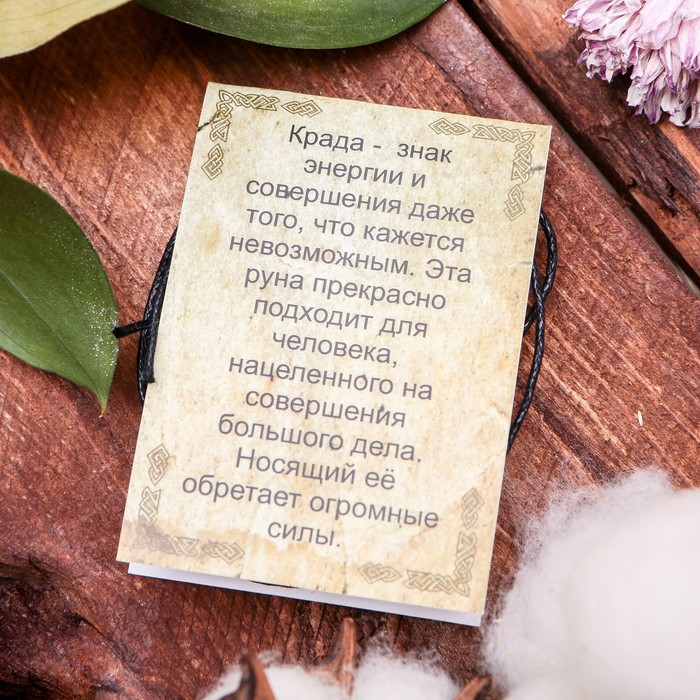 Крада - знак
энергии и
совершения даже
того, что кажется
невозможным. Эта
руна прекрасно
подходит для
человека,
нацеленного на
совершения
большого дела.
Носящий её
обретает огромные
силы.